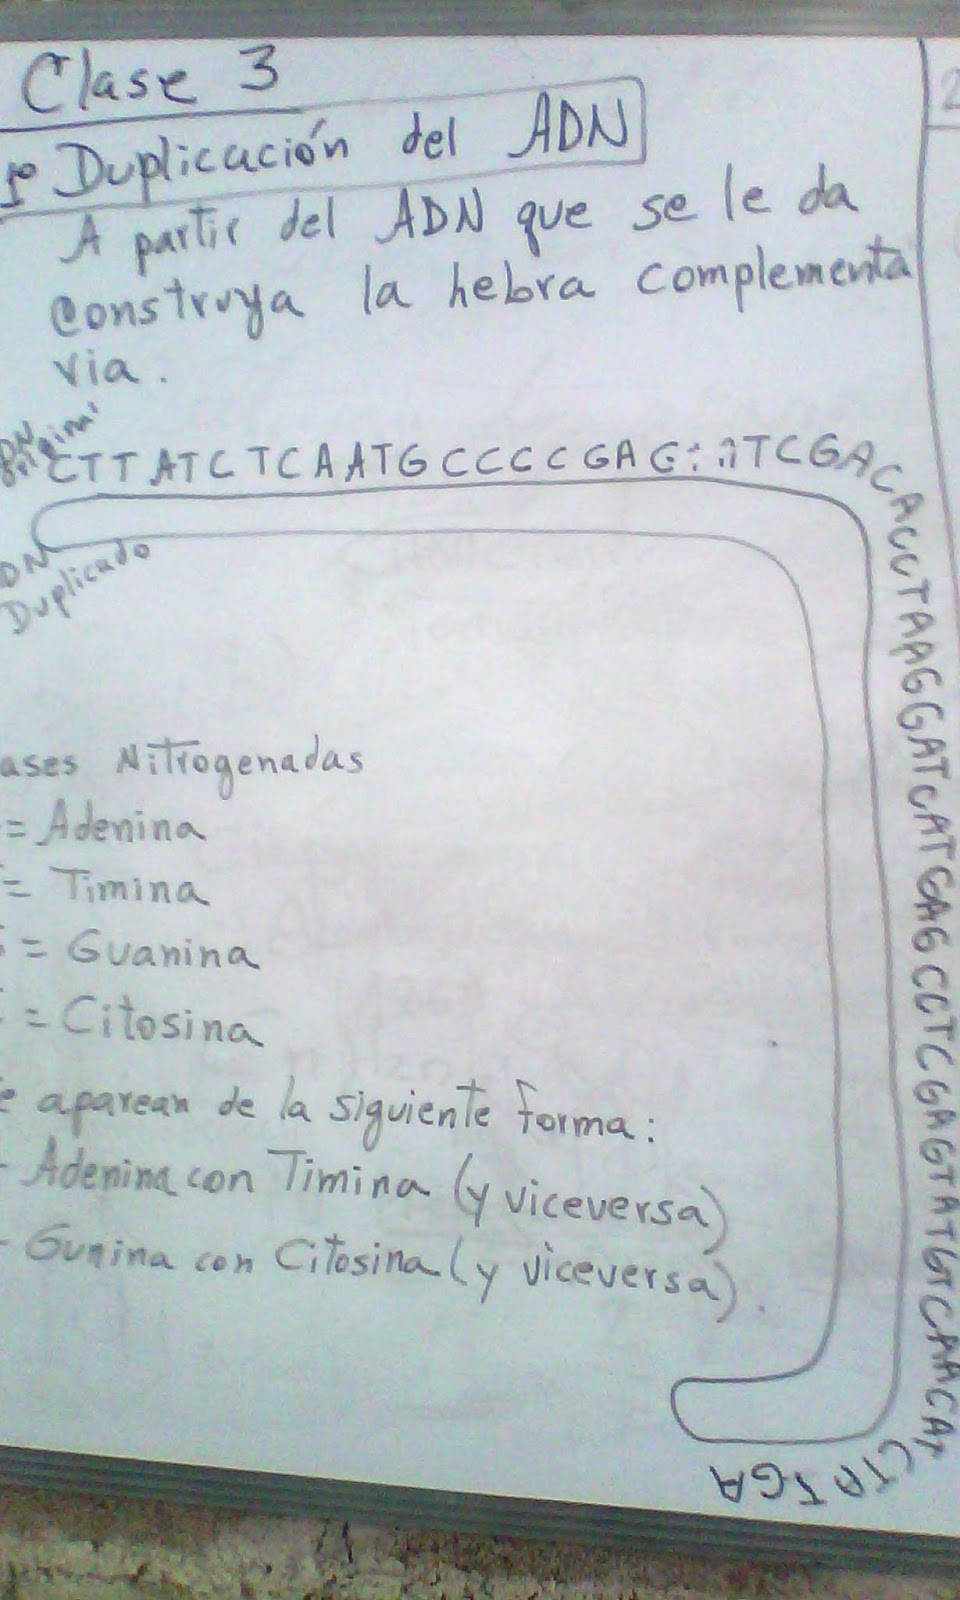 Clase 3
1º Duplicación del ADN
A partir del ADN que se le da
construya la hebra complementa
ria.
DN
Original
CTTATCTCAATGCCCCGAG TCGACACCTAAGGATCATGAGCCTCGAGTATGTCAACA
CTATGA
DN
Duplicado
ases Nitrogenadas
= Adenina
= Timina
G = Guanina
= Citosina
e aparean de la siguiente forma:
- Adenina con Timina (y viceversa)
- Gunina con Citosina (y viceversa).
2